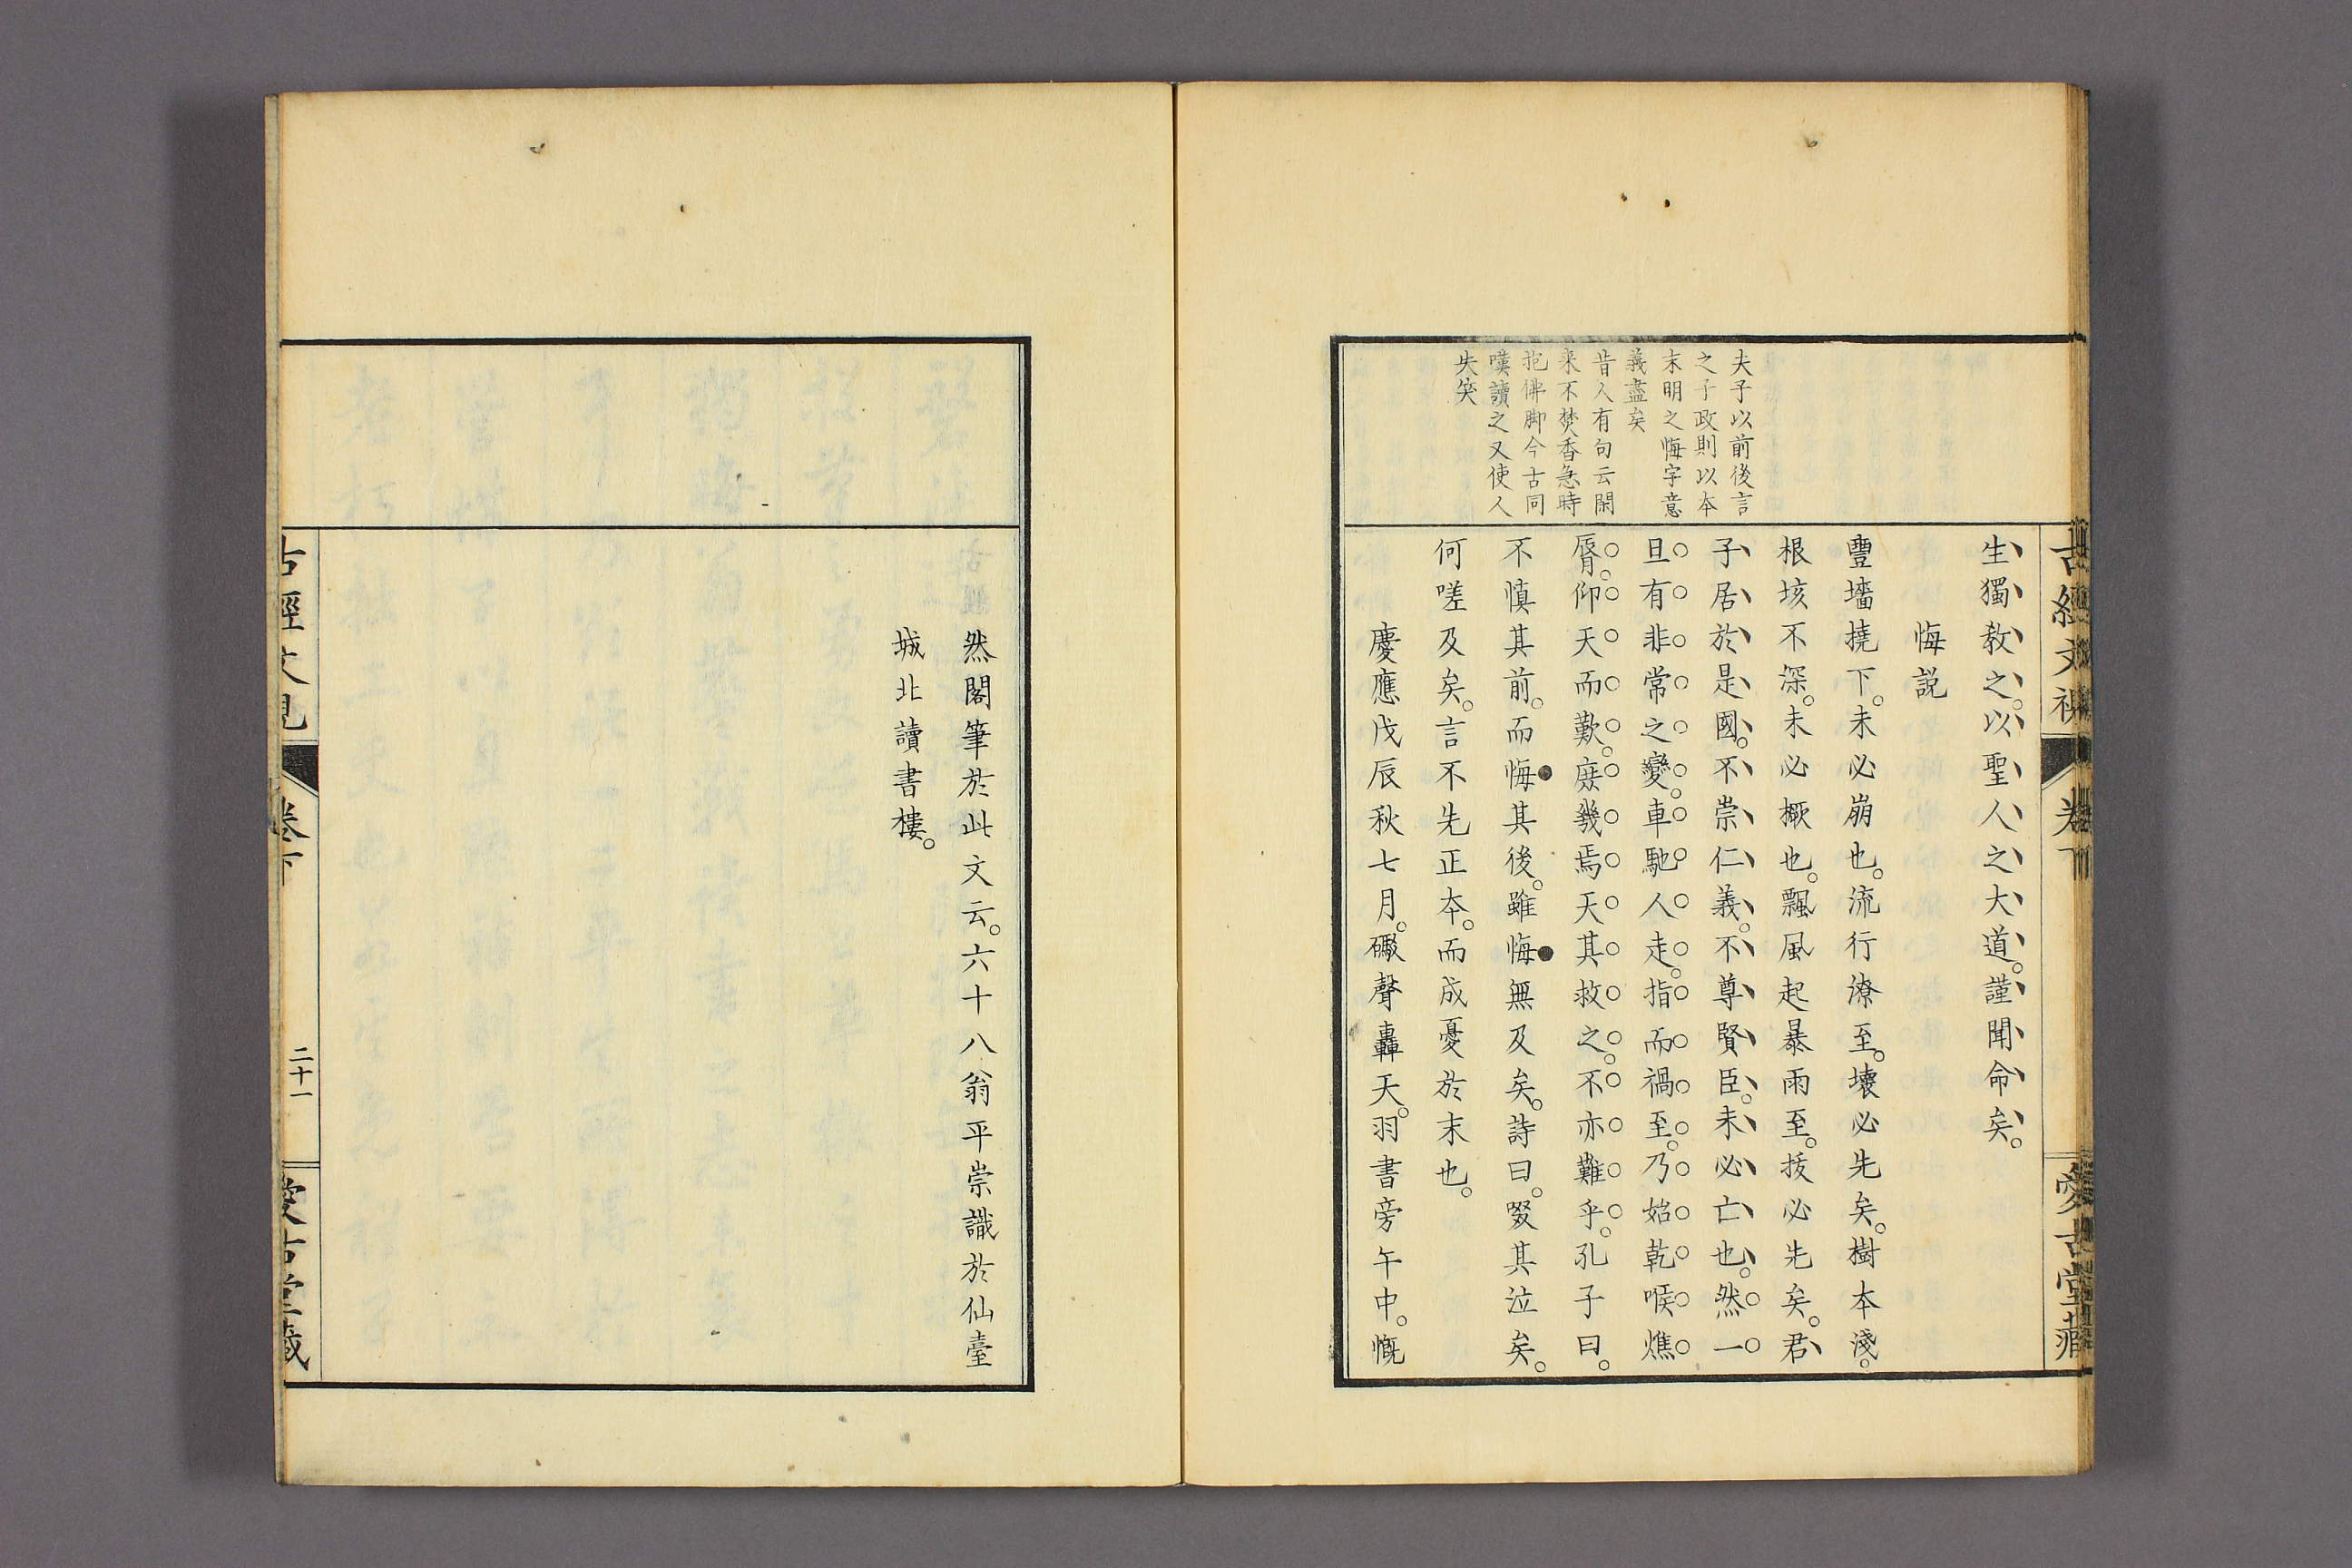 夫子以前後言
之子政則以本
末明之悔字意
義盡矣
昔人有句云閑
來不焚香急時
抱佛脚今古同
嘆讀之又使人
失笑
生獨教之。以聖人之大道。謹聞命矣。
悔説
豐墻撓下。未必崩也。流行潦至。壞必先矣。樹本淺。
根垓不深。未必橛也。飄風起暴雨至。拔必先矣。君
子居於是國。不崇仁義。不尊賢臣。未必亡也。然一
旦有非常之變。車馳人走。指而禍至。乃始乾喉燋
脣。仰天而歎。庶幾焉天其救之。不亦難乎。孔子曰。
不慎其前。而悔其後。雖悔無及矣。詩曰。啜其泣矣。
何嗟及矣。言不先正本。而成憂於末也。
慶應戊辰秋七月。礮聲轟天。羽書旁午中。慨
然閣筆於此文云。六十八翁平崇識於仙臺
城北讀書樓。
卷下
二十一
愛古堂藏